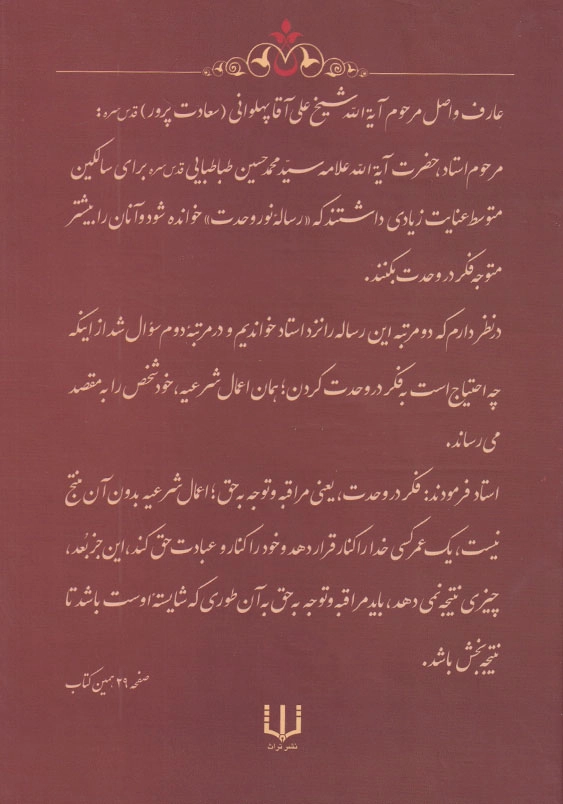 عارف واصل مرحوم آیة الله شیخ علی آقا پهلوانی (سعادت پرور) قدس سره :
مرحوم استاد، حضرت آیة الله علامه سید محمد حسین طباطبایی قدس سره برای سالکین
متوسط عنایت زیادی داشتند که «رسالۀ نور وحدت» خوانده شود و آنان را بیشتر
متوجه فکر در وحدت بکنند.
در نظر دارم که دو مرتبه این رساله را نزد استاد خواندیم و در مرتبۀ دوم سؤال شد از اینکه
چه احتیاج است به فکر در وحدت کردن؛ همان اعمال شرعیه، خود شخص را به مقصد
می رساند.
استاد فرمودند: فکر در وحدت، یعنی مراقبه و توجه به حق؛ اعمال شرعیه بدون آن منتج
نیست، یک عمر کسی خدا را کنار قرار دهد و خود را کنار و عبادت حق کند، این جز بُعد،
چیزی نتیجه نمی دهد، باید مراقبه و توجه به حق به آن طوری که شایسته اوست باشد تا
نتیجه بخش باشد.
صفحه ۲۹ همین کتاب
نشر تراث